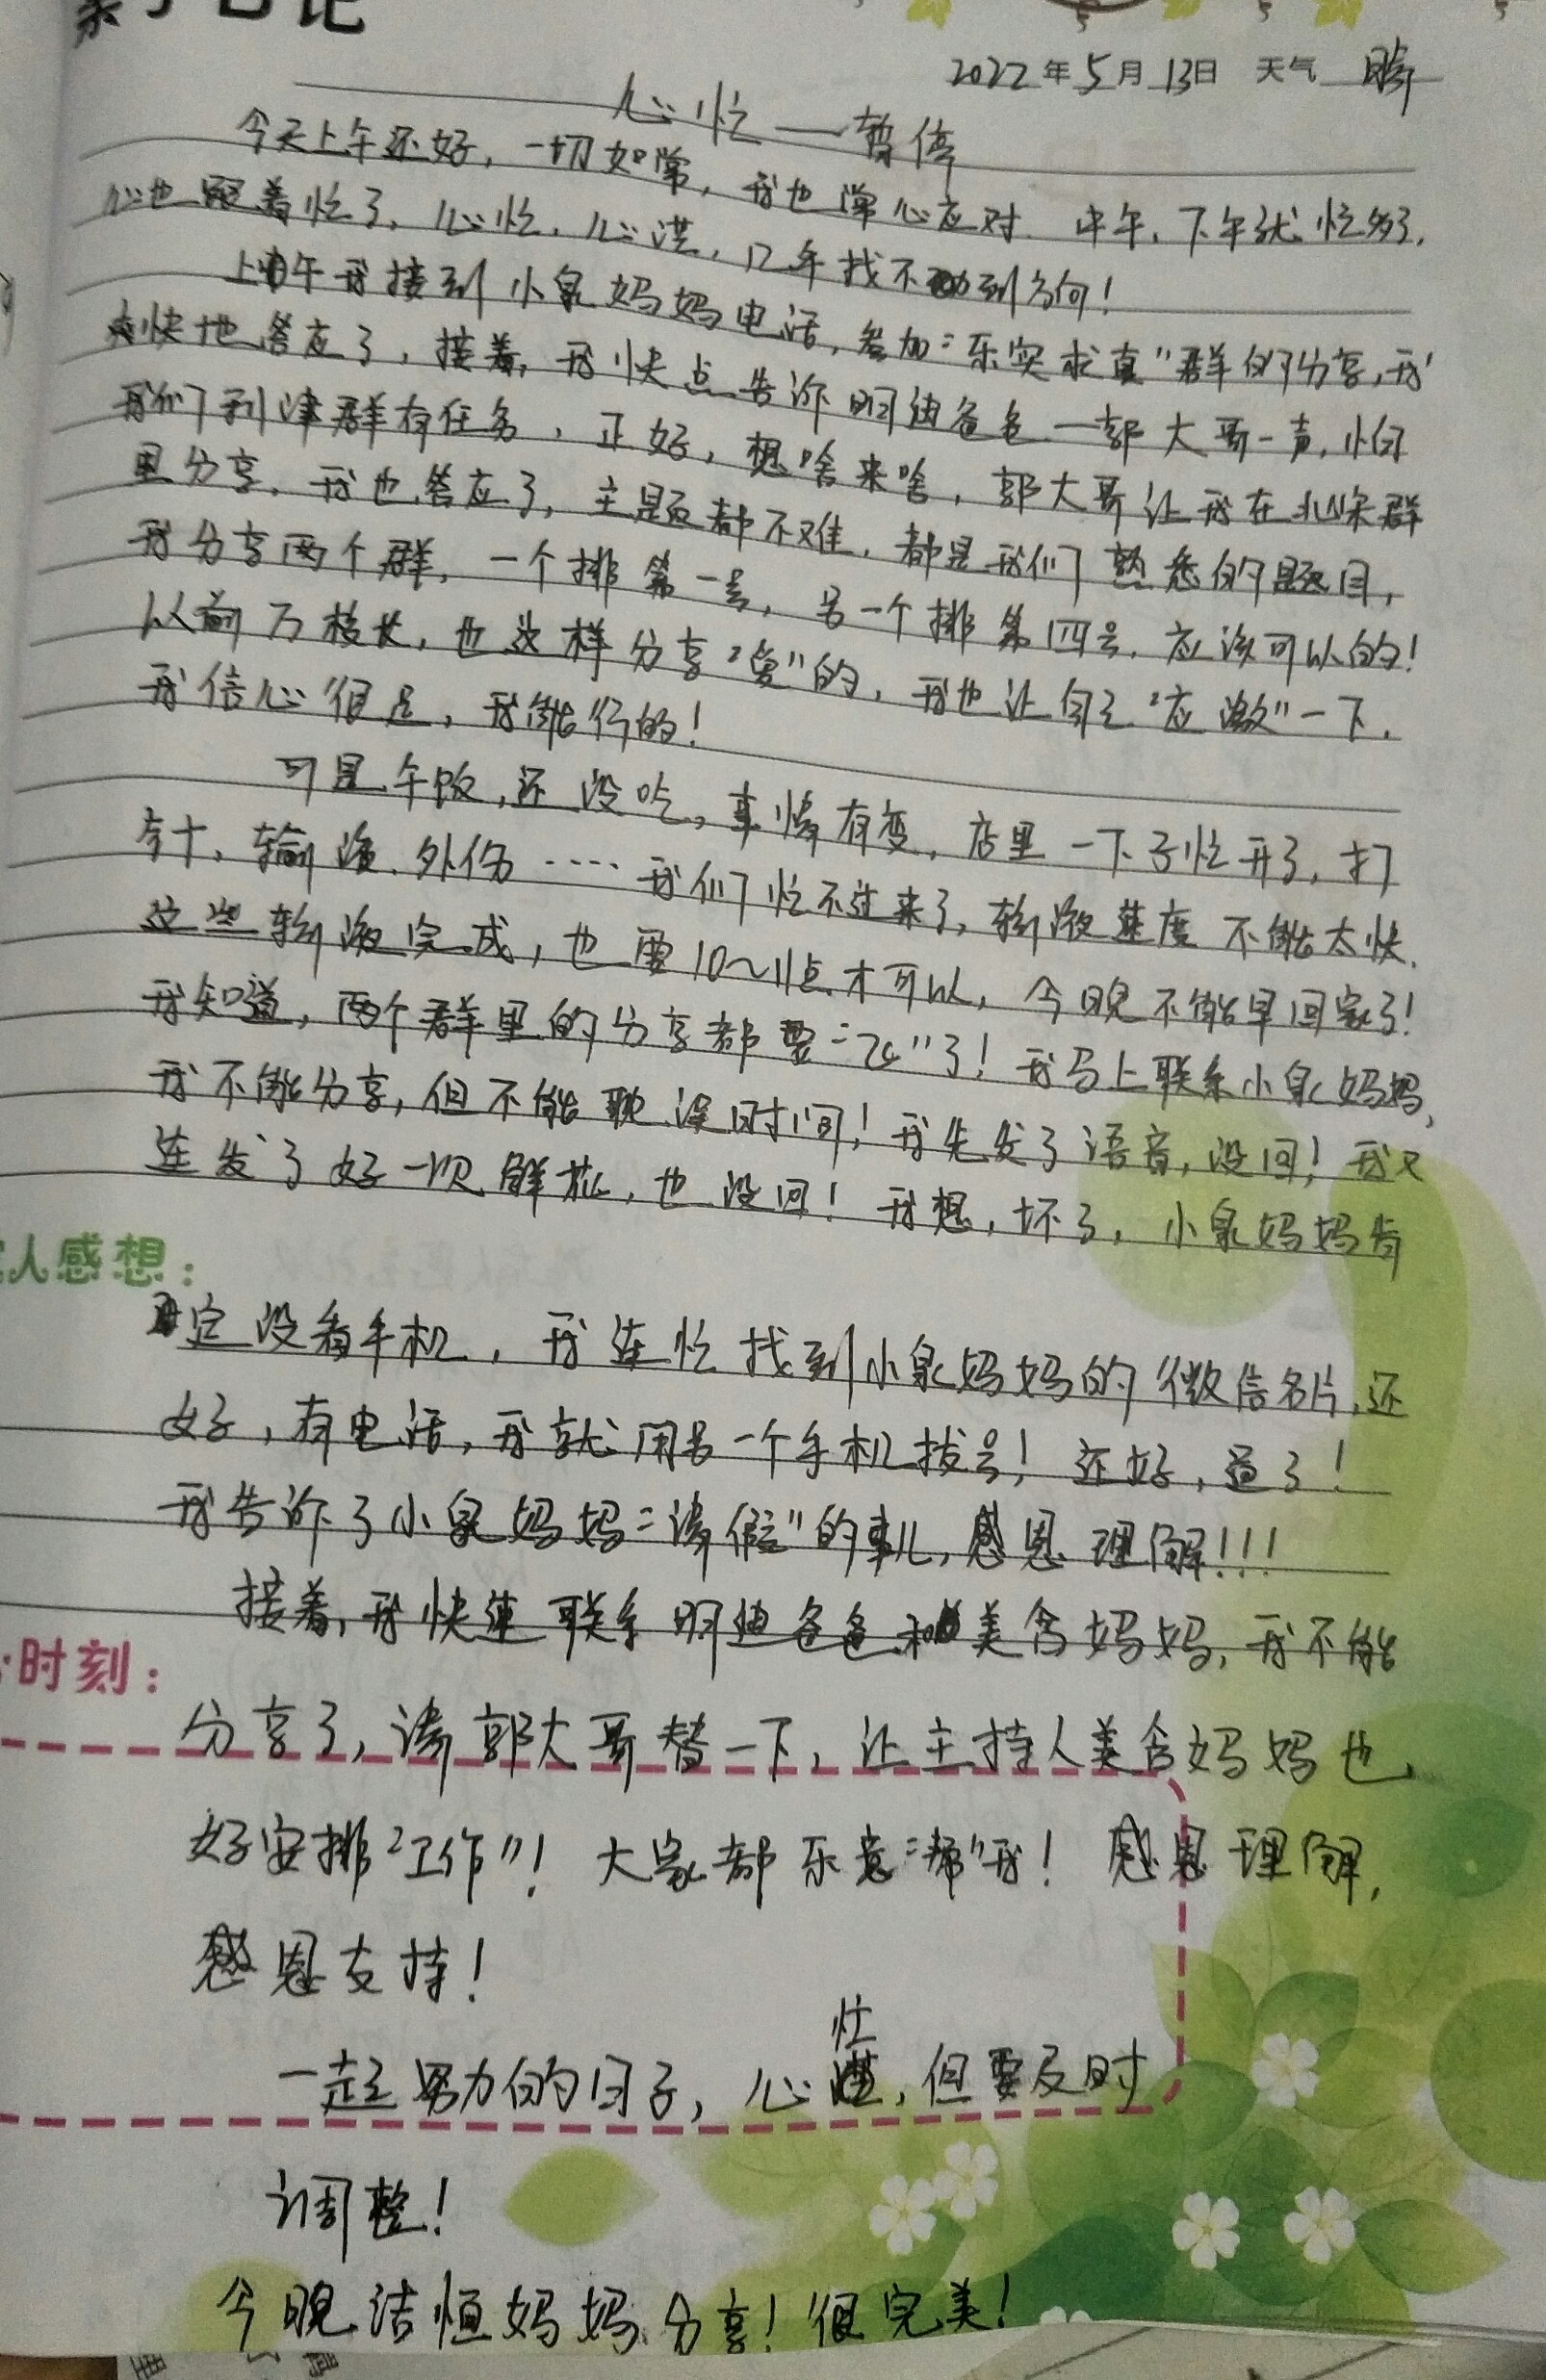 亲子日记
2022年5月13日 天气 晴
心忙——暂停
今天上午还好，一切如常，我也常心应对。中午、下午就忙多了，
心也跟着忙了，心忙，心茫，几乎找不到方向！
上午我接到小泉妈妈电话，参加“乐实求真”群的分享，我
爽快地答应了，接着，我快点告诉明迪爸爸—郭大哥一声，怕
我们天津群有任务，正好，想啥来啥，郭大哥让我在北京群
里分享，我也答应了，主题都不难，都是我们熟悉的题目，
我分享两个群，一个排第一号，另一个排第四号，应该可以的！
以前万校长，也这样分享“爱”的，我也让自己“应激”一下，
我信心很足，我能行的！
可是午饭，还没吃，事情有变，店里一下子忙开了，打
针、输液、外伤……我们忙不过来了，输液速度不能太快，
这些输液完成，也要10～11点才可以，今晚不能早回家了！
我知道，两个群里的分享都要“飞”了！我马上联系小泉妈妈，
我不能分享，但不能耽误时间！我先发了语音，没回！我又
连发了好一次鲜花，也没回！我想，坏了，小泉妈妈肯
人感想：
定没看手机，我连忙找到小泉妈妈的微信名片，还
好，有电话，我就用另一个手机拔号！还好，通了！
我告诉了小泉妈妈“请假”的事儿，感恩理解！！！
接着，我快速联系明迪爸爸和美含妈妈，我不能
时刻：
分享了，请郭大哥替一下，让主持人美含妈妈也
好安排“工作”！大家都乐意“帮”我！感恩理解，
感恩支持！
一起努力的日子，心忙，但要及时
调整！
今晚洁恒妈妈分享！很完美！